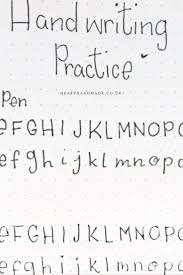 Handwriting
Practice
HEARTHANDMADE.CO.UK
Pen
eFGHIJKLMNOPQ
efghijklmnopq
eFGHIJKLMNOPQ
efghijklmnopq